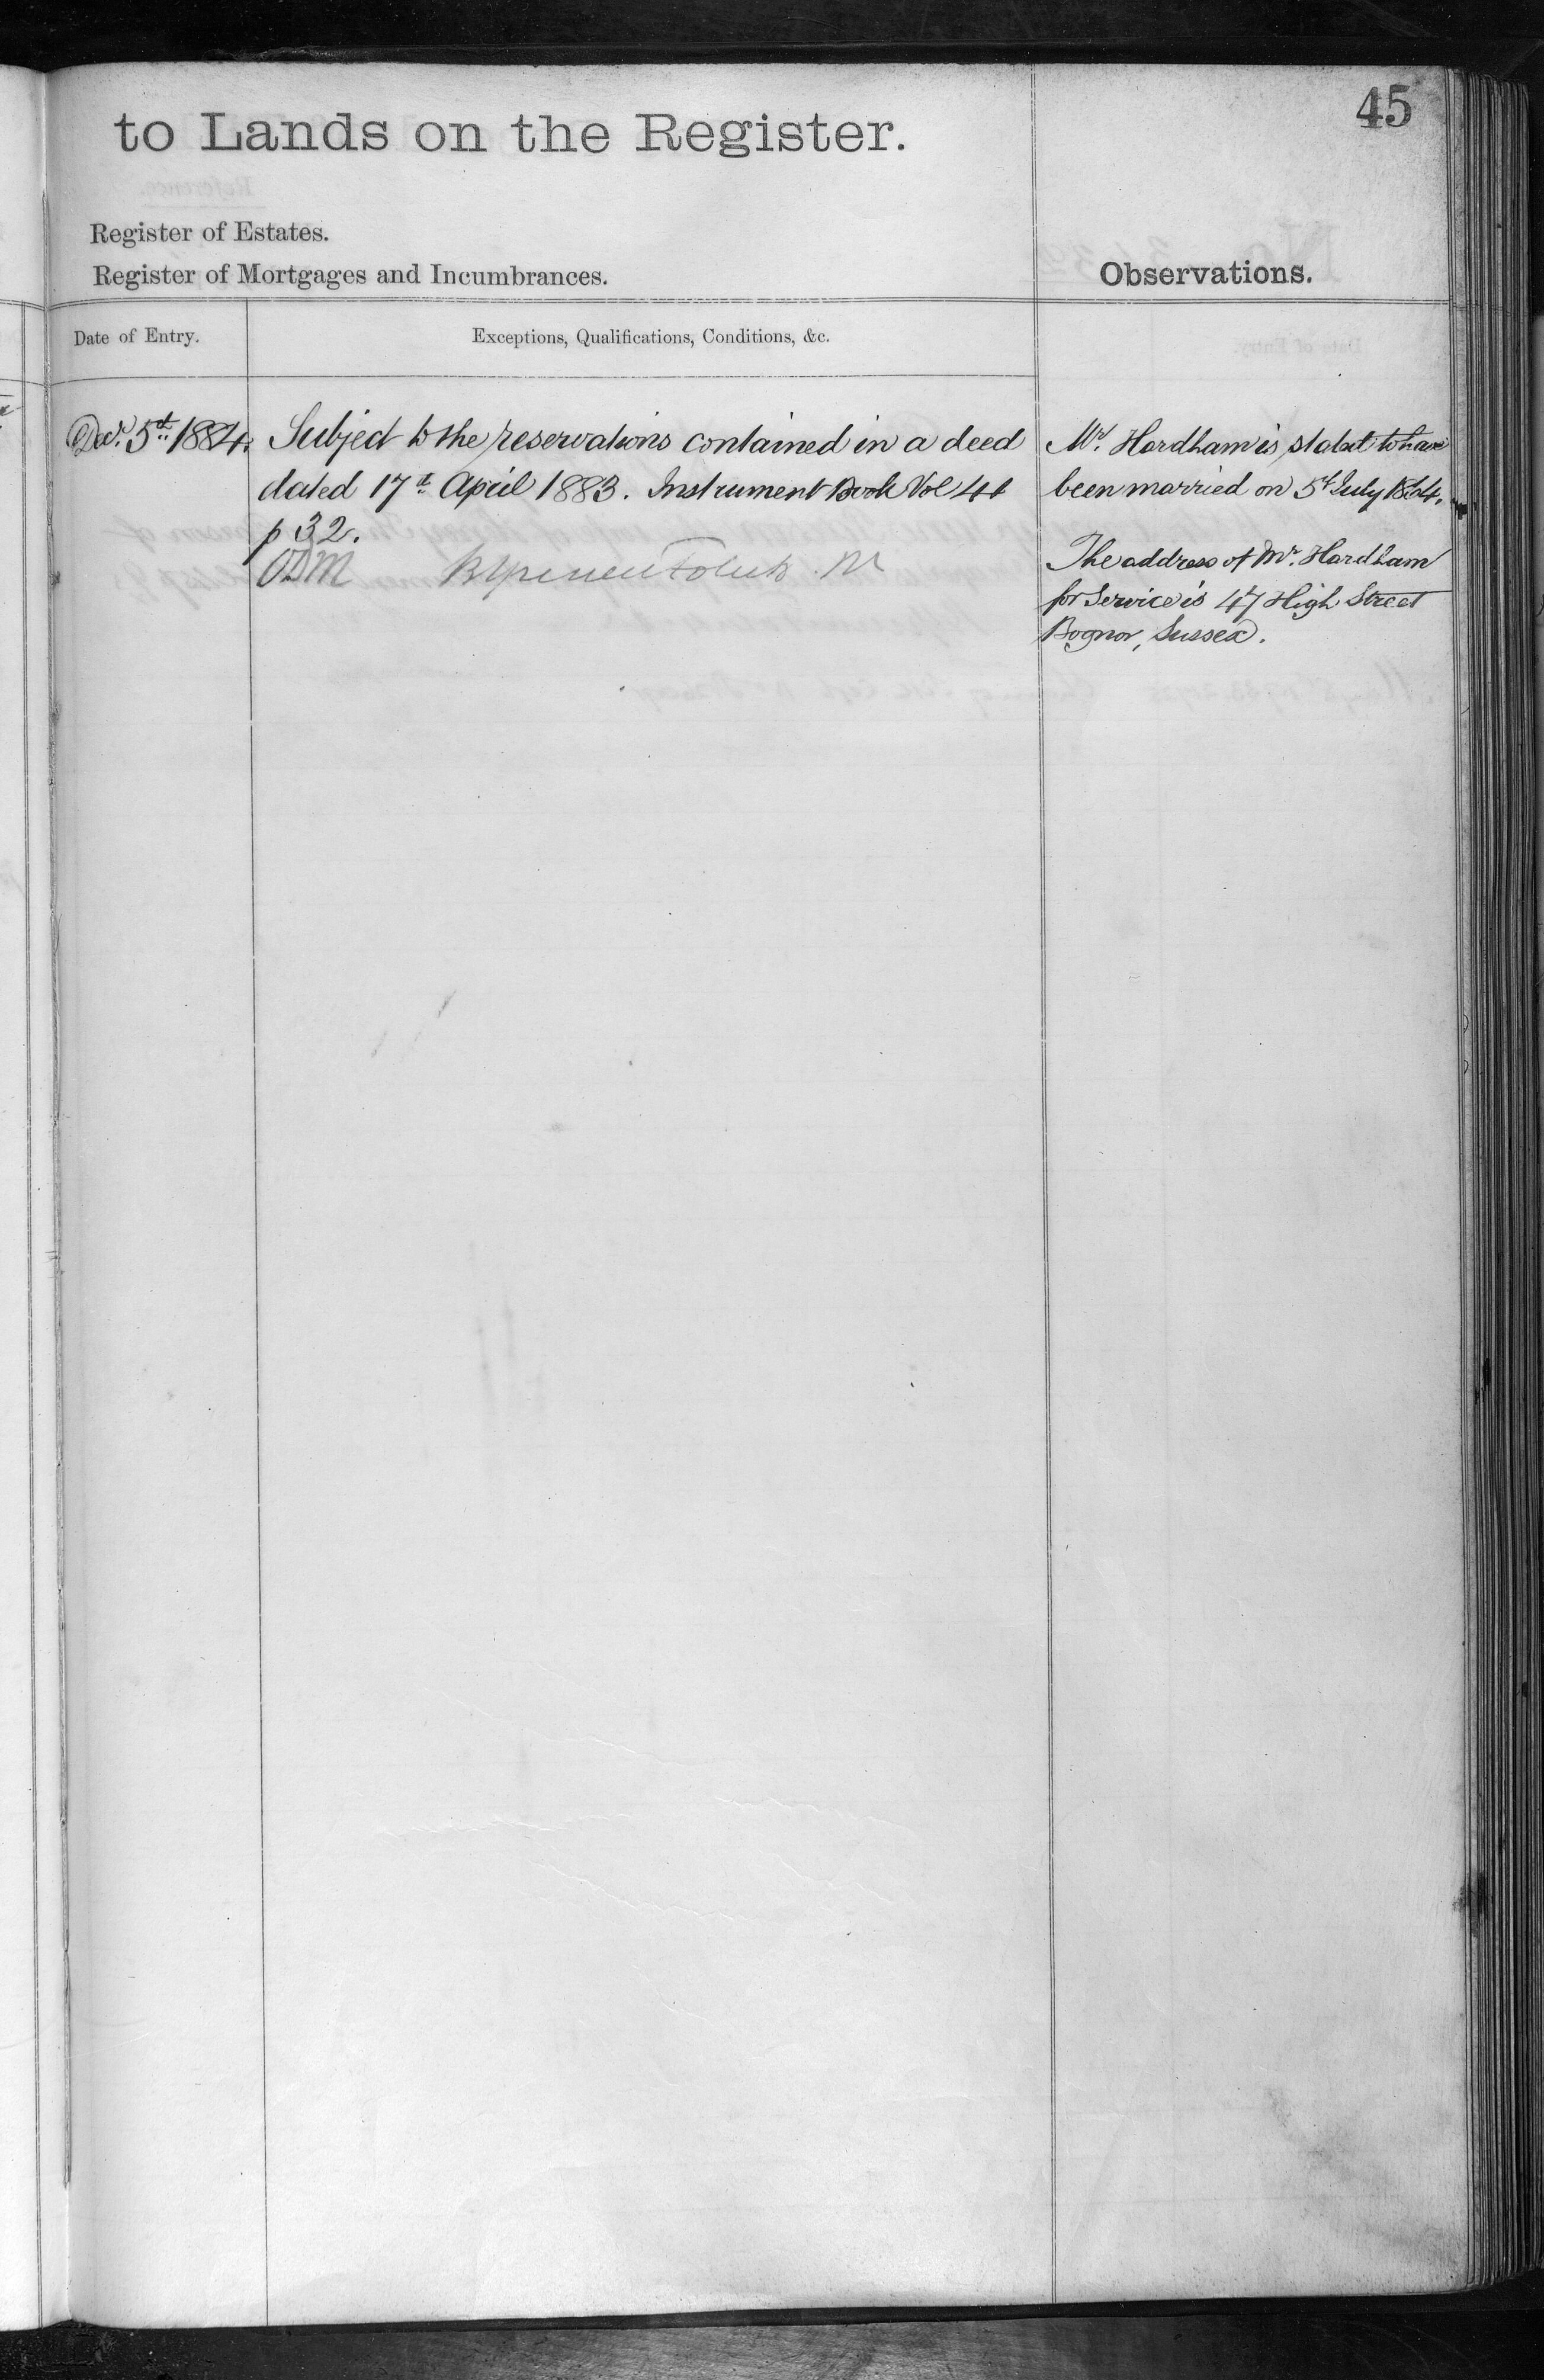 45
to Lands on the Register.
Register of Estates.
Register of Mortgages and Incumbrances.
Observations.
Date of Entry.
Exceptions, Qualifications, Conditions, &c.
Decr. 5th 1884.
Subject to the reservations contained in a deed
dated 17th April 1883. Instrument Book Vol 44
p 32.
Mr. Hardham is stated to have
been married on 5th July 1864.
The address of Mr. Hardham
for Service is 47 High Street
Bognor, Sussex.